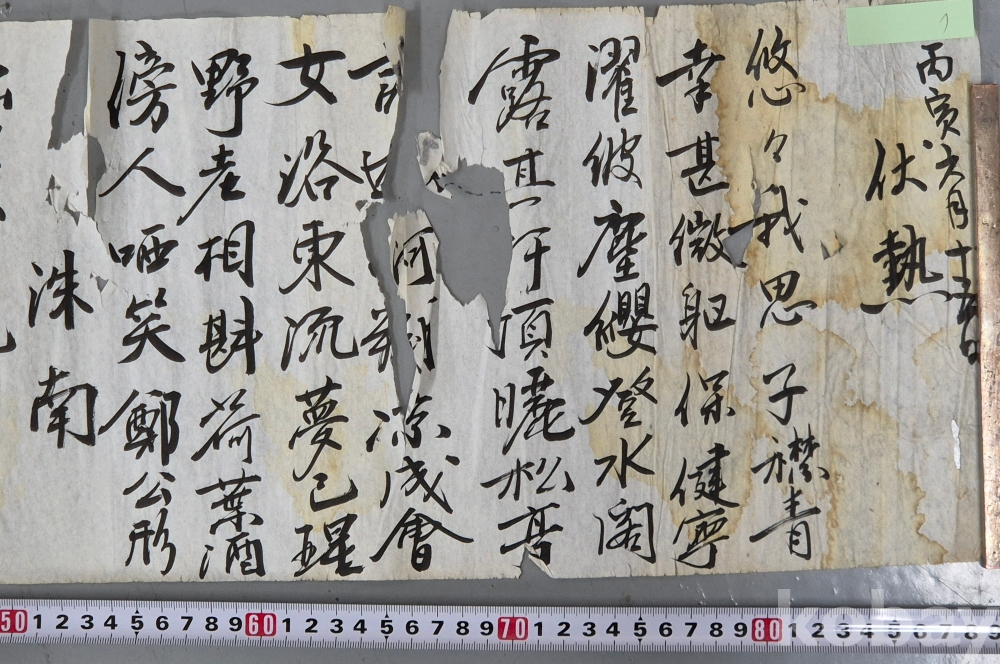 丙寅六月十日
伏熱
悠々我思子襟青
幸甚微躯保健寧
濯彼塵纓登水閣
露汗頂曬松亭
河朔凉成會
女沿東流夢已醒
野老相斟荷葉酒
傍人哂笑鄭公形
洙南
50 1 2 3 4 5 6 7 8 9 60 1 2 3 4 5 6 7 8 9 70 1 2 3 4 5 6 7 8 9 80 1 2 3 4 5 6 7 8
kobay